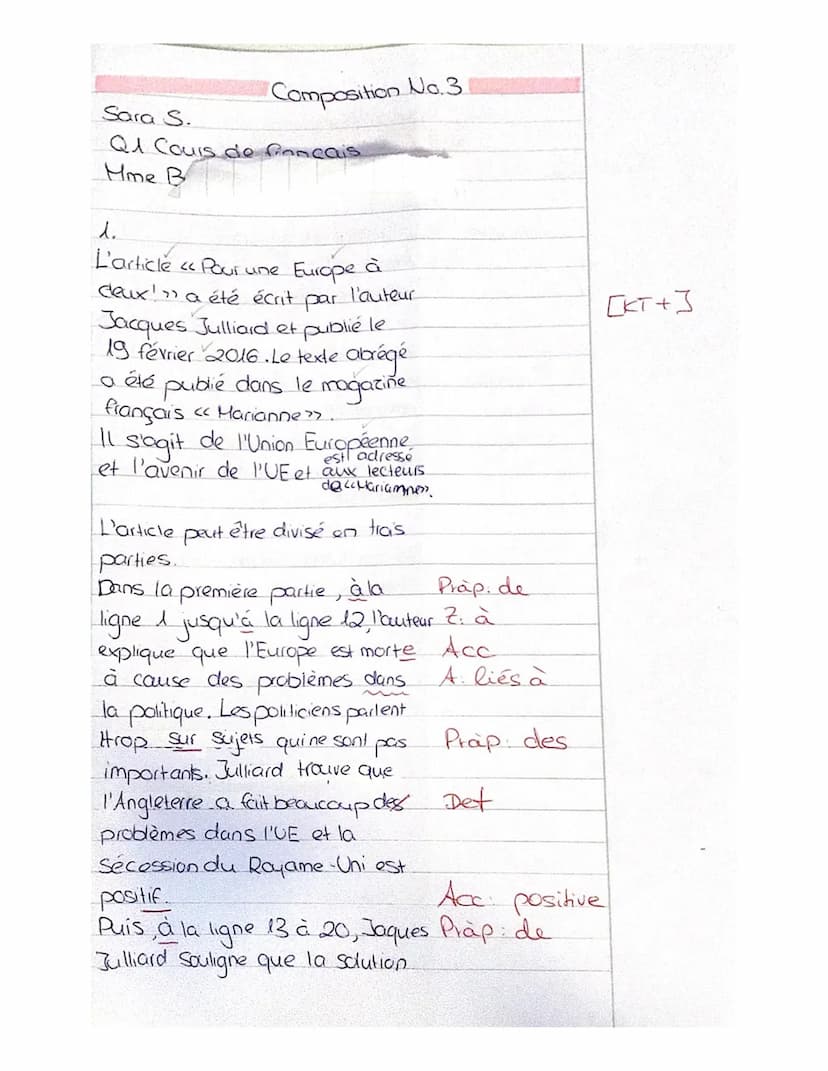 Composition No.3
Sara S.
Q1 Cours de francais
Mme B
1.
L'article « Pour une Europe à
deux! » a été écrit par l'auteur
Jacques Julliard et publié le
19 février 2016. Le texte abrégé
a été publié dans le magazine
français « Marianne ».
[KT+]
Il s'agit de l'Union Européenne
est adressé
et l'avenir de l'UE et aux lecteurs
de «Marianne».
L'article peut être divisé en trois
parties.
Dans la première partie, à la Präp. de
ligne 1 jusqu'á la ligne 12, l'auteur Z. à
explique que l'Europe est morte Acc
à cause des problèmes dans A. liés à
la politique. Les politiciens parlent
trop sur sujets qui ne sont pas Präp: des
importants. Julliard trouve que
l'Angleterre a fait beaucoup des Det
problèmes dans l'UE et la
sécession du Royame-Uni est
positif. Acc: positive
Puis, à la ligne 13 à 20, Jaques Präp: de
Julliard souligne que la solution